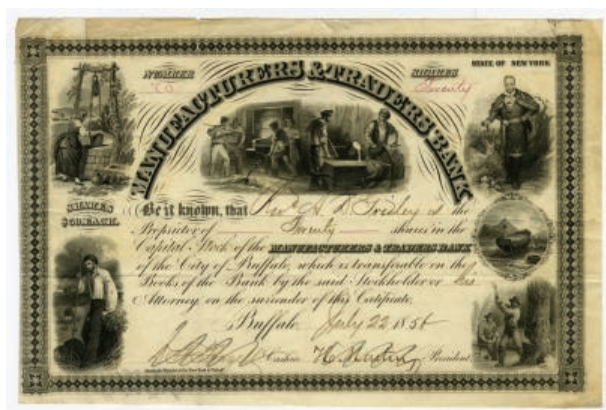 NUMBER
SHARES
STATE OF NEW YORK
Twenty
MANUFACTURERS & TRADERS BANK
SHARES
$50 EACH.
Be it known, that is the
Proprietor of Twenty shares in the
Capital Stock of the MANUFACTURERS & TRADERS BANK
of the City of Buffalo, which is transferable on the
Books of the Bank by the said Stockholder or his
Attorney on the surrender of this Certificate.
Buffalo July 22 1856
Cashier President